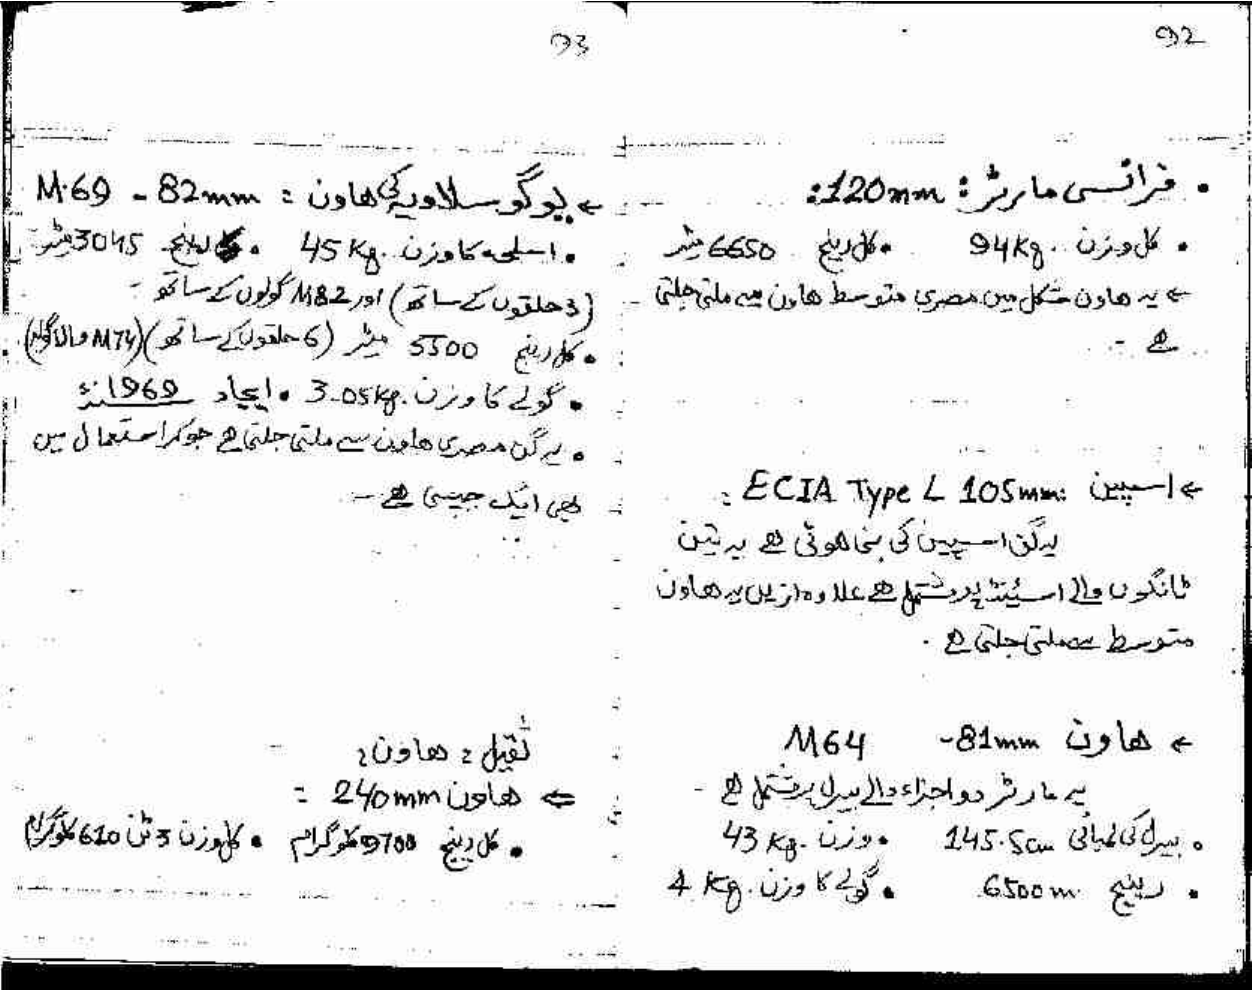 92
• فرانسی مارٹر: 120mm:
• کل وزن. 94Kg • کل رینج 6650 میٹر
← یہ ھاون شکل میں مصری متوسط ھاون سے ملتی جلتی
ھے -
← اسپین ECIA Type L 105mm:
یہ گن اسپین کی بنی ھوئی ھے یہ تین
ٹانگوں والے اسٹینڈ پر مشتمل ھے علاوہ ازیں یہ ھاون
متوسط سے ملتی جلتی ھے .
← ھاون 81mm- M64
یہ مارٹر دو اجزاء والے بیرل پر مشتمل ھے -
• بیرل کی لمبائی 145.5cm • وزن. 43 Kg
• رینج 6500m • گولے کا وزن. 4 Kg
93
← یوگوسلاویہ کی ھاون : M.69 - 82mm
• اسلحہ کا وزن. 45 Kg • رینج 3045 میٹر
(3 حلقوں کے ساتھ) اور M82 گولوں کے ساتھ -
• کل رینج 5500 میٹر (6 حلقوں کے ساتھ) (M74 والا گولہ)
• گولے کا وزن. 3.05Kg • ایجاد 1969ء
• یہ گن مصری ھاون سے ملتی جلتی ھے جو کہ استعمال میں
بھی ایک جیسی ھے -
ثقیل : ھاون :
⇐ ھاون 240mm :
• کل رینج 9700 کلوگرام • کل وزن 3 ٹن 610 کلوگرام